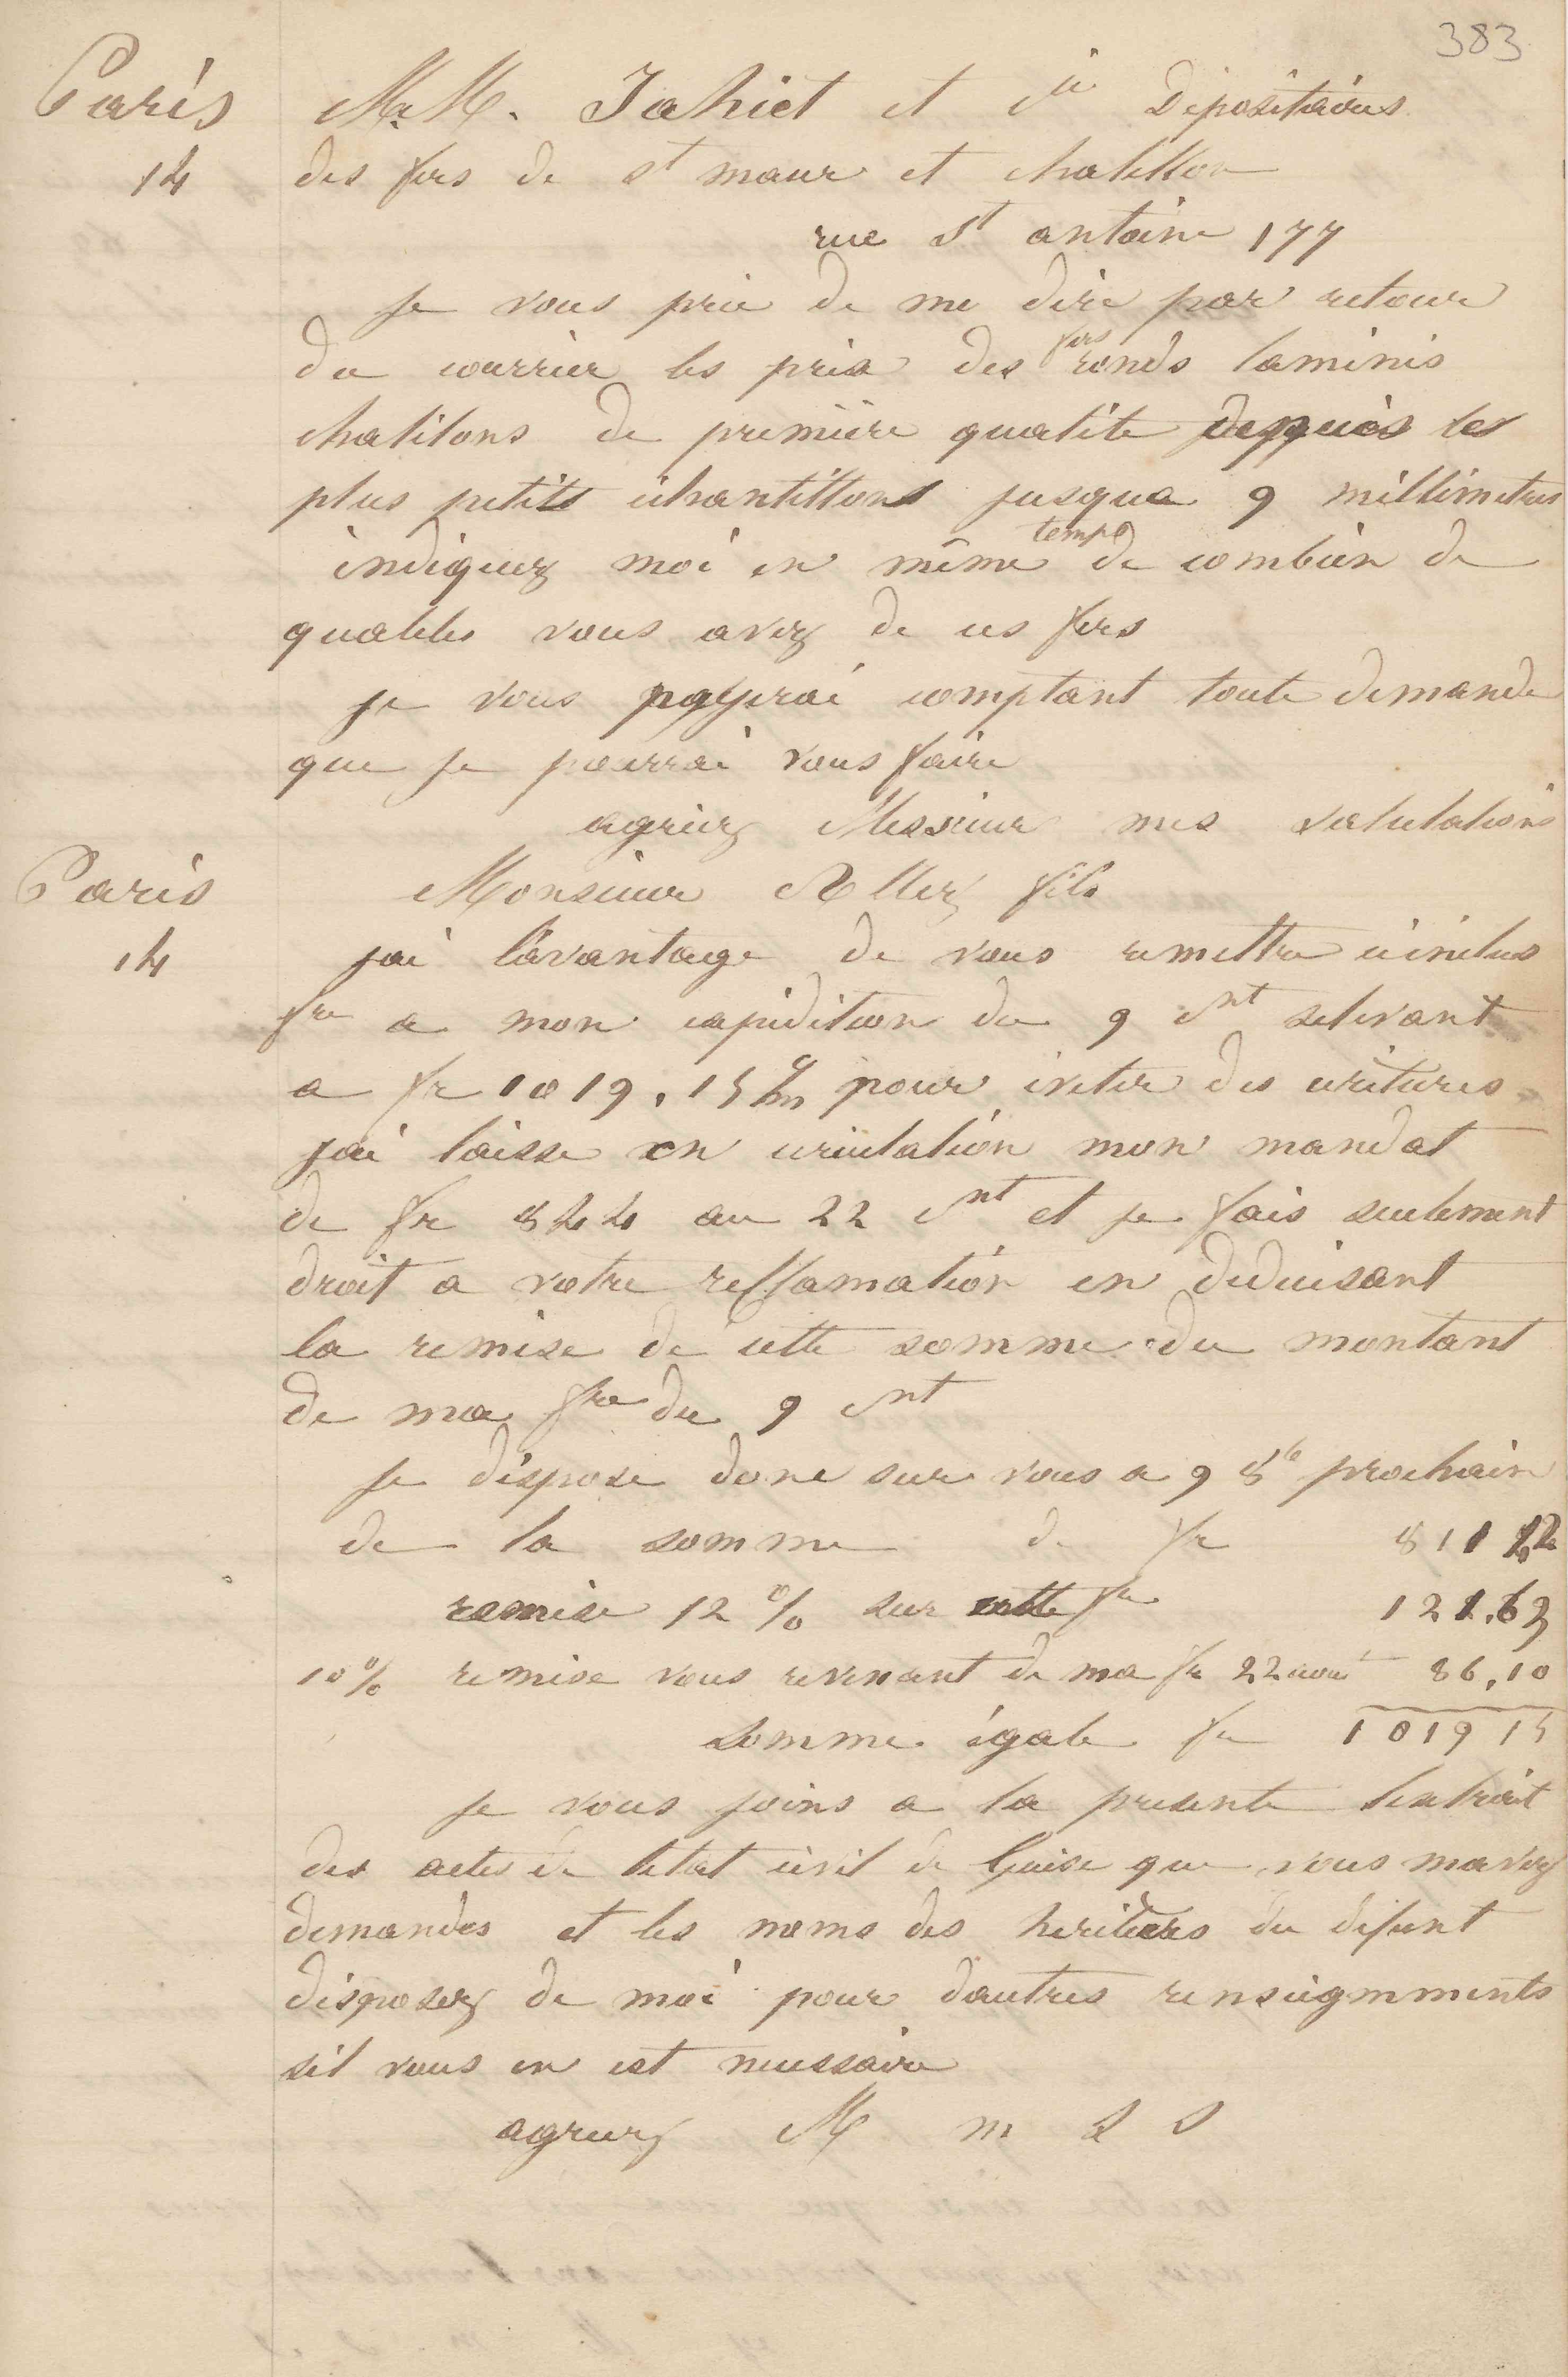 383
Paris
14
M. M. Jahiet et Cie Dépositaires
des fers de st maur et chatillon
rue St antoine 177
je vous prie de me dire par retour
du courrier les prix des fers ronds laminés
chatilons de première qualité depuis les
plus petits échantillons jusqua 9 millimetres
indiquez moi en même temps de combien de
qualités vous avez de ces fers
je vous payerai comptant toute demande
que je pourrai vous faire
agréez Messieur mes salutations
Paris
14
Monsieur Allez fils
jai l'avantage de vous remettre ci inclus
fre a mon expédition du 9 Cnt selevant
a fr 1019.15 pour éviter des écritures
jai laissé en circulation mon mandat
de fr 844 au 22 Cnt et je fais seulement
droit a votre reclamation en déduisant
la remise de cette somme du montant
de ma fre du 9 Cnt
je dispose donc sur vous a 9 8b prochain
de la somme de fr 811 42
remise 12 % sur cette fre 121.63
10 % remise vous revenant de ma fr 22 aout 86,10
somme égale fr 1019 15
je vous joins a la presente lextrait
des actes de létat civil de Guise que vous mavez
demandés et les noms des heritiers du défunt
disposez de moi pour dautres renseignements
sil vous en est necessaire
agréez M m s s